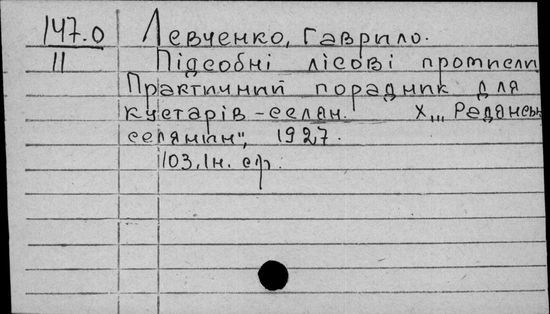 147.0 Левченко, Гаврило.
11 Підсобні лісові промисли
Практичний порадник для
кустарів-селян. Х., „Радянськ
селянин", 1927.
103,1н. ср.